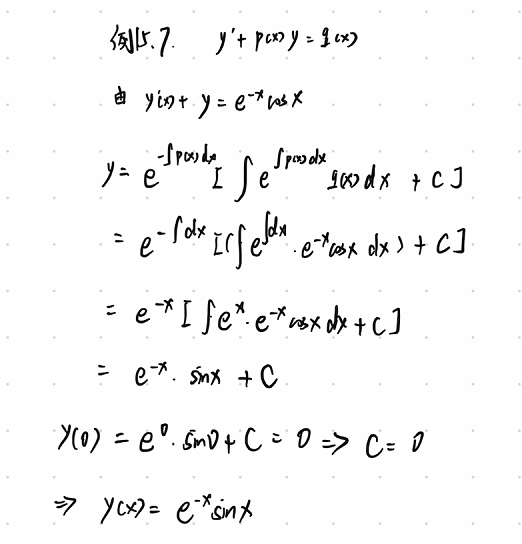 例15.7. y' + p(x) y = q(x)
由 y'(x) + y = e^{-x} cos x
y = e^{-∫p(x)dx} [ ∫ e^{∫p(x)dx} q(x) dx + C ]
= e^{-∫dx} [(∫ e^{∫dx} · e^{-x} cos x dx) + C ]
= e^{-x} [ ∫ e^{x} · e^{-x} cos x dx + C ]
= e^{-x} · sin x + C
y(0) = e^{0} · sin 0 + C = 0 ⇒ C = 0
⇒ y(x) = e^{-x} sin x